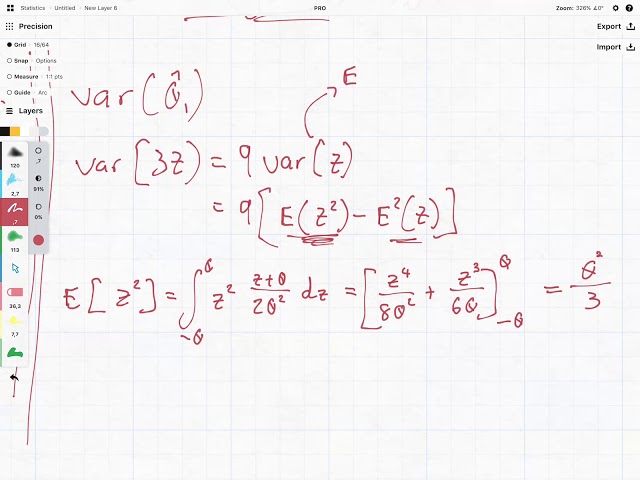 Statistics · Untitled · New Layer 6
PRO
Zoom: 326% ∠0°
Precision
Export
Import
Grid · 16/64
Snap · Options
Measure · 1:1 pts
Guide · Arc
Layers
120
2,7
,7
113
36,3
7,7
,7
91%
0%
var(θ̂₁)
E
var[3z) = 9 var(z)
= 9[E(z²) − E²(z)]
E[z²] = ∫_{-θ}^{θ} z² (z+θ)/(2θ²) dz = [z⁴/(8θ²) + z³/(6θ)]_{-θ}^{θ} = θ²/3